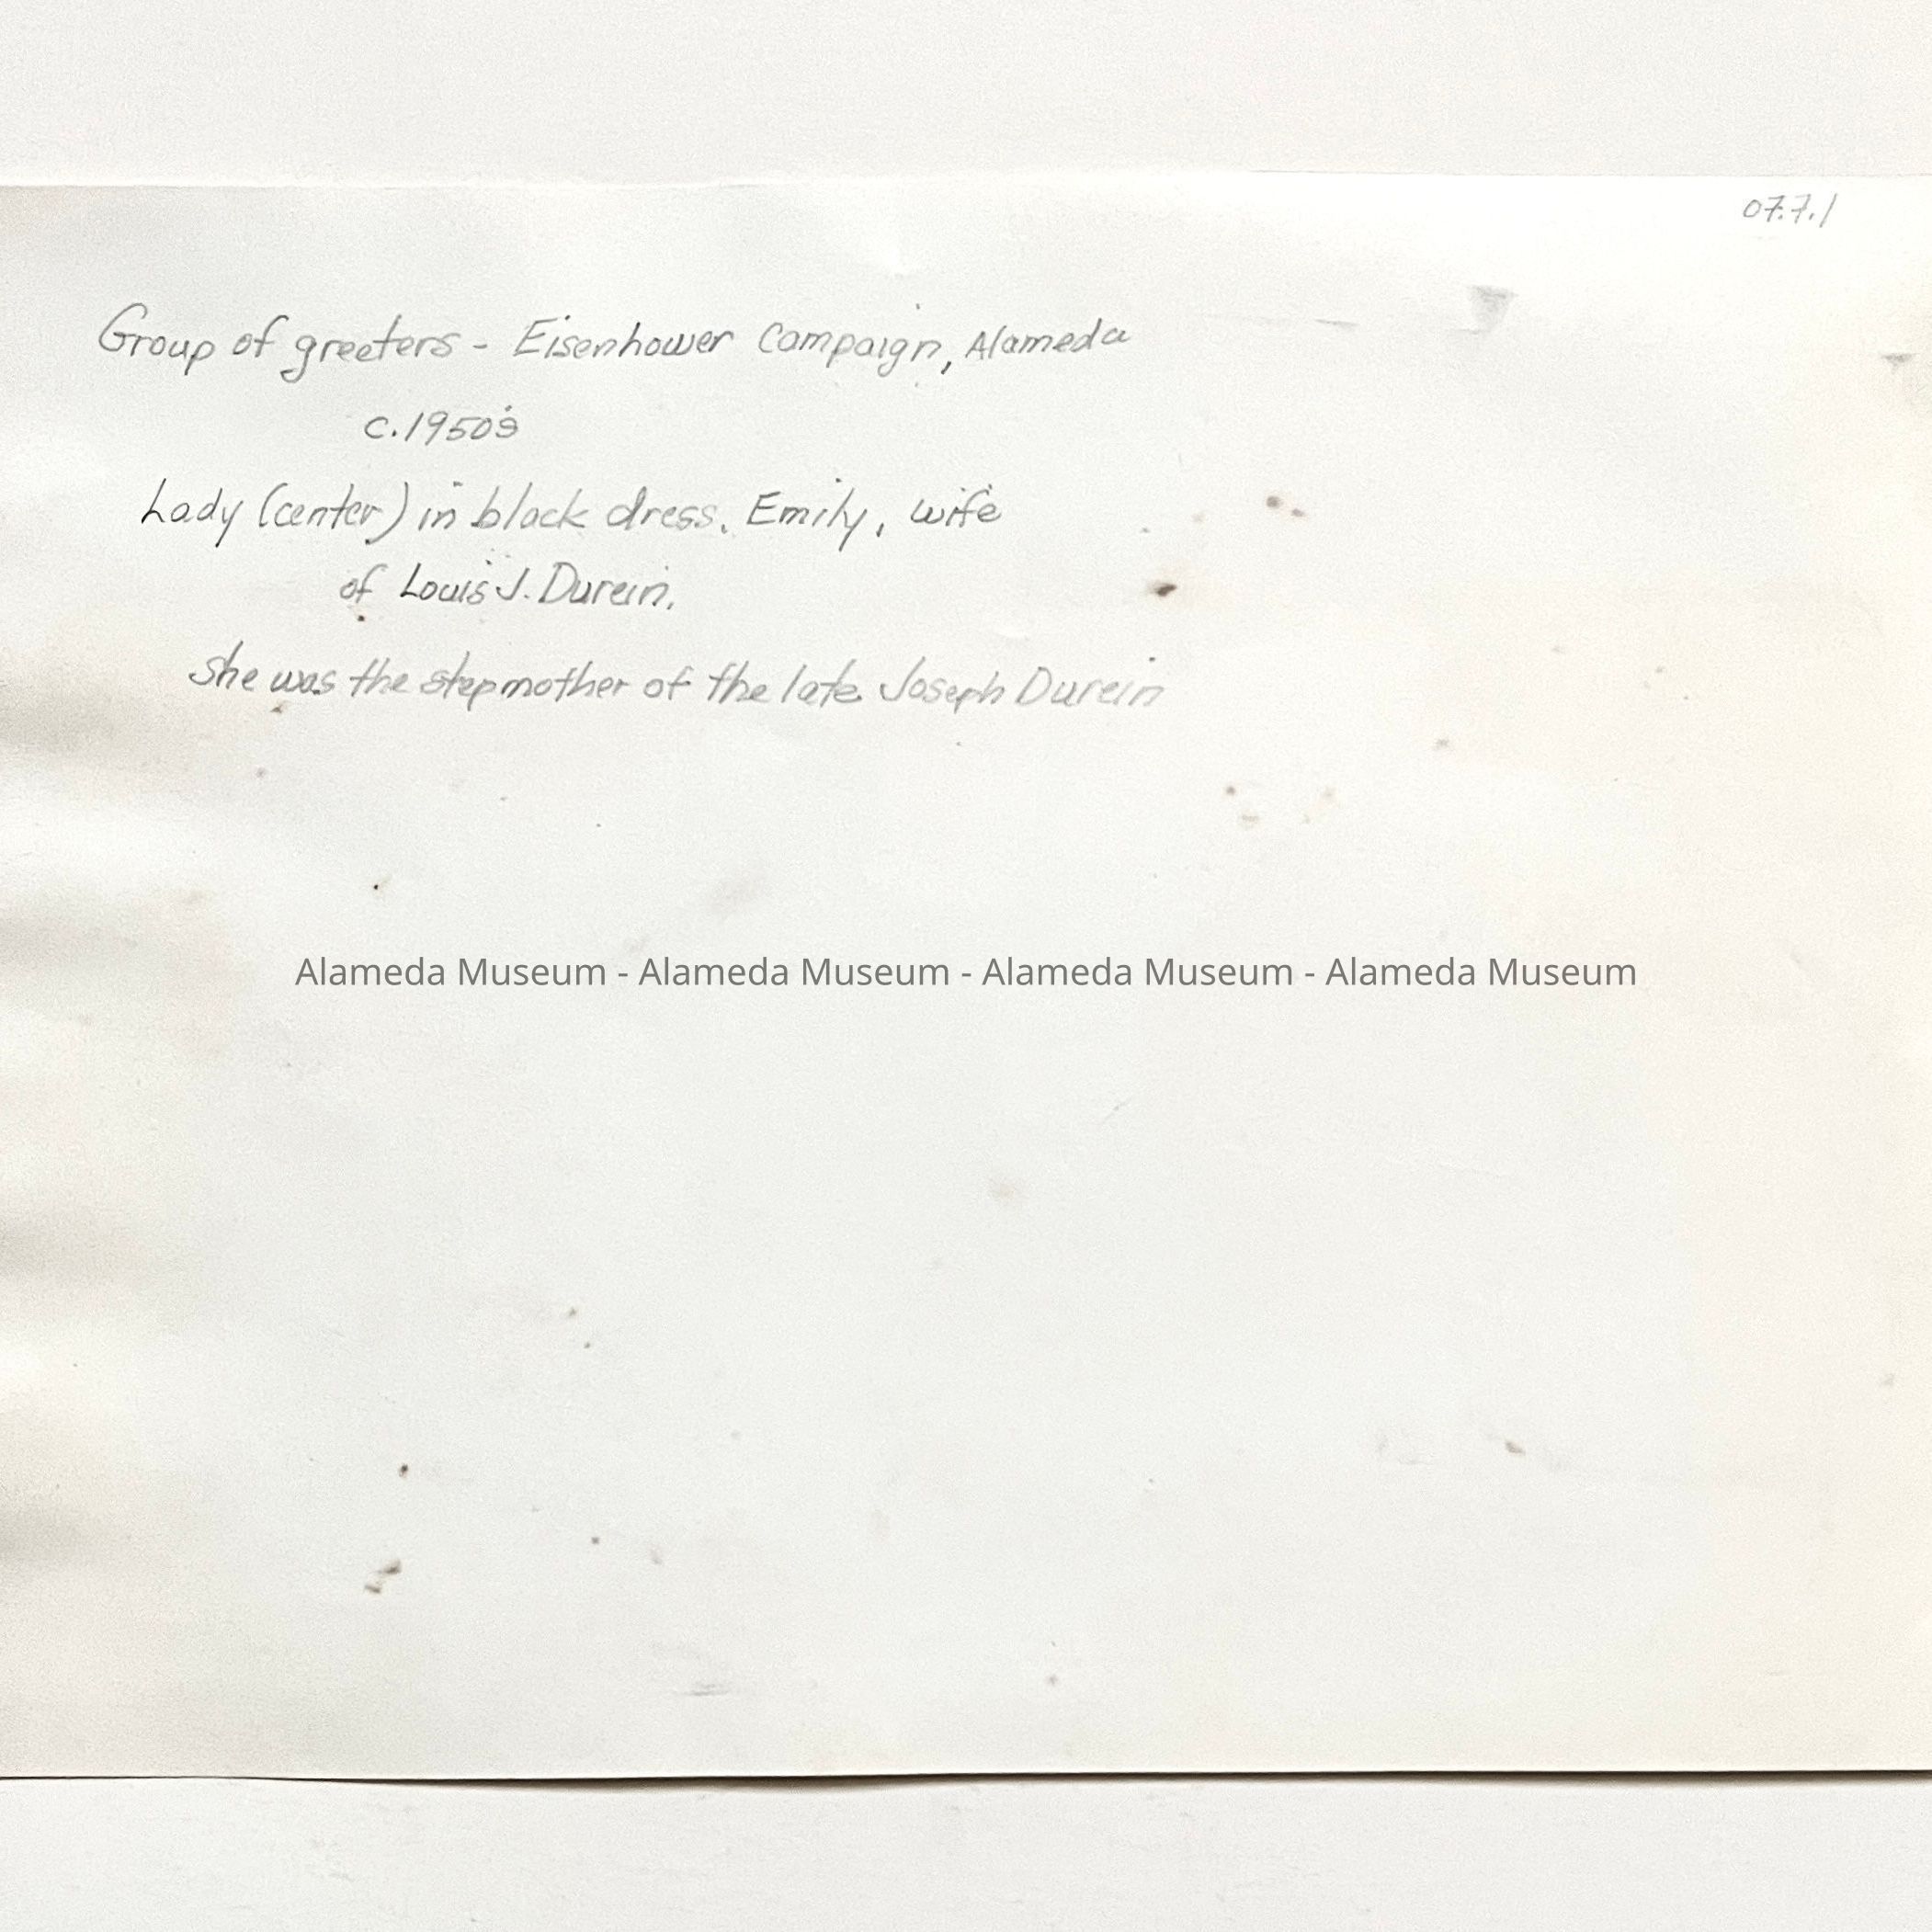 07.7.1
Group of greeters - Eisenhower Campaign, Alameda
c. 1950's
Lady (center) in black dress. Emily, wife
of Louis J. Durein.
She was the stepmother of the late Joseph Durein
Alameda Museum - Alameda Museum - Alameda Museum - Alameda Museum